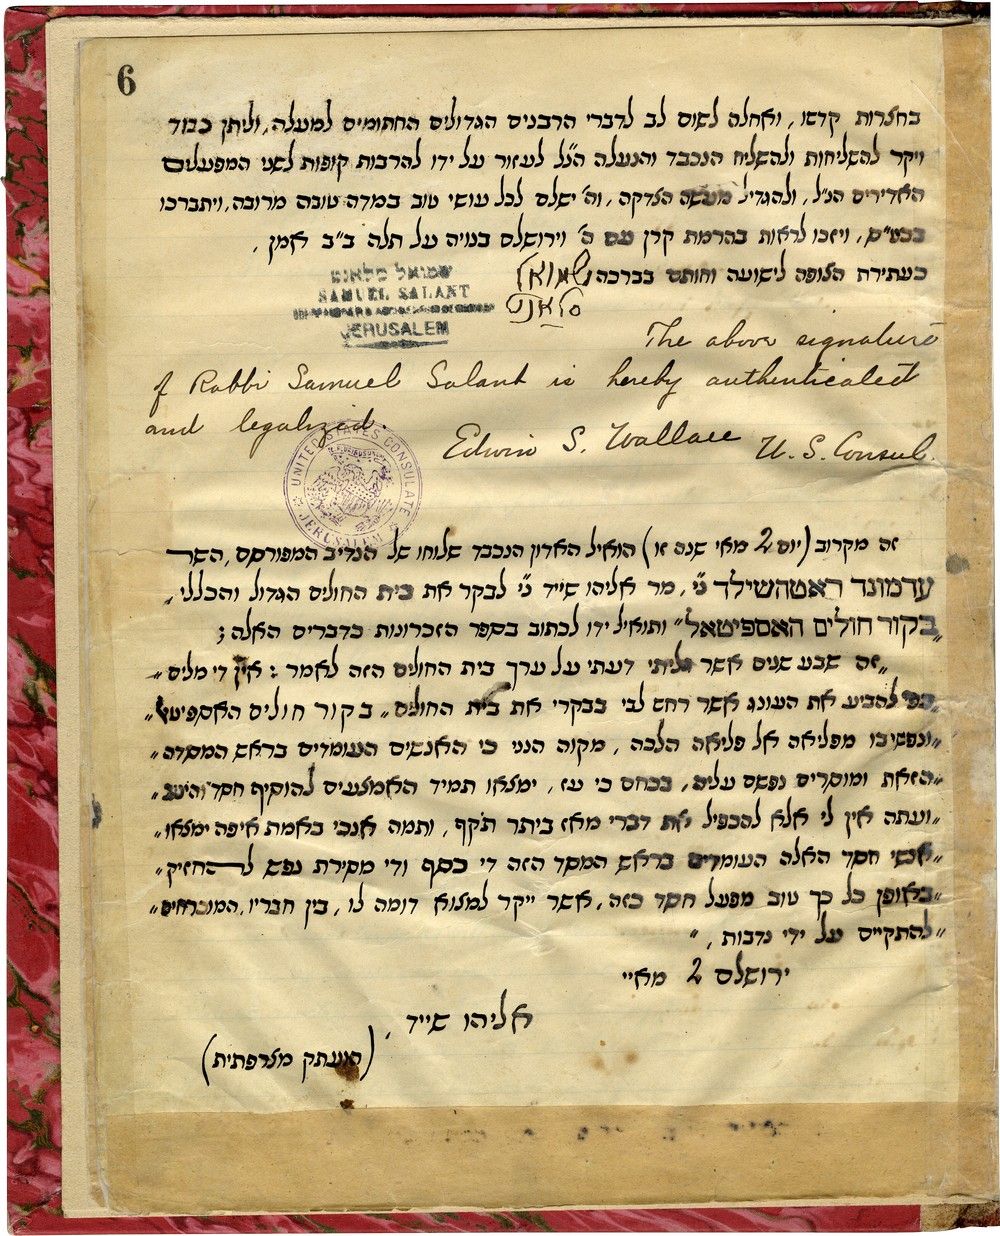 6
בחצרות קדשו, ואחלה לשום לב לדברי הרבנים הגדולים החתומים למעלה, וליתן כבוד
ויקר להשליחות ולהשליח הנכבד והנעלה הנ"ל לעזור על ידו להרבות קופות לשני המפעלים
האדירים הנ"ל, ולהגדיל מעשה הצדקה, וה' ישלם לכל עושי טוב במדה טובה מרובה, ויתברכו
בכט"ס, ויזכו לראות בהרמת קרן עם ה' וירושלם בנויה על תלה ב"ב אמן,
בעתירת הצופה לישועה וחותם בברכה שמואל
סלאנט
שמואל סלאנט
SAMUEL SALANT
JERUSALEM
The above signature
of Rabbi Samuel Salant is hereby authenticated
and legalized.
Edwin S. Wallace U. S. Consul.
UNITED STATES CONSULATE
JERUSALEM
זה מקרוב (יום 2 מאי שנה זו) הואיל האדון הנכבד שלוחו של הנדיב המפורסם, השר
עדמונד ראטהשילד נ"י, מר אליהו שייד נ"י לבקר את בית החולים הגדול והכללי,
"בקור חולים האספיטאל" ותואיל ידו לכתוב בספר הזכרונות כדברים האלה;
"זה שבע שנים אשר גליתי דעתי על ערך בית החולים הזה לאמר: אין די מלים"
"בפי להביע את העונג אשר רחש לבי בבקרי את בית החולים" בקור חולים האספיטל"
"ונפשי בו מפליאה אל פליאה הלכה, מקוה הנני כי האנשים העומדים בראש המוסדה"
"הזאת ומוסרים נפשם עליה, בכחם כי עז, ימצאו תמיד האמצעים להוסיף חסד והיטב"
"ועתה אין לי אלא להכפיל את דברי מאז ביתר תקף, ותמה אנכי באמת איפה ימצאו"
"אנשי חסד האלה העומדים בראש המוסד הזה די כסף ודי מסירת נפש להחזיק"
"באופן כל כך טוב מפעל חסד כזה, אשר ייקר למצוא דומה לו, בין חבריו, המוכרחים"
"להתקיים על ידי נדבות,"
ירושלם 2 מאיי
אליהו שייד,
(הועתק מצרפתית)